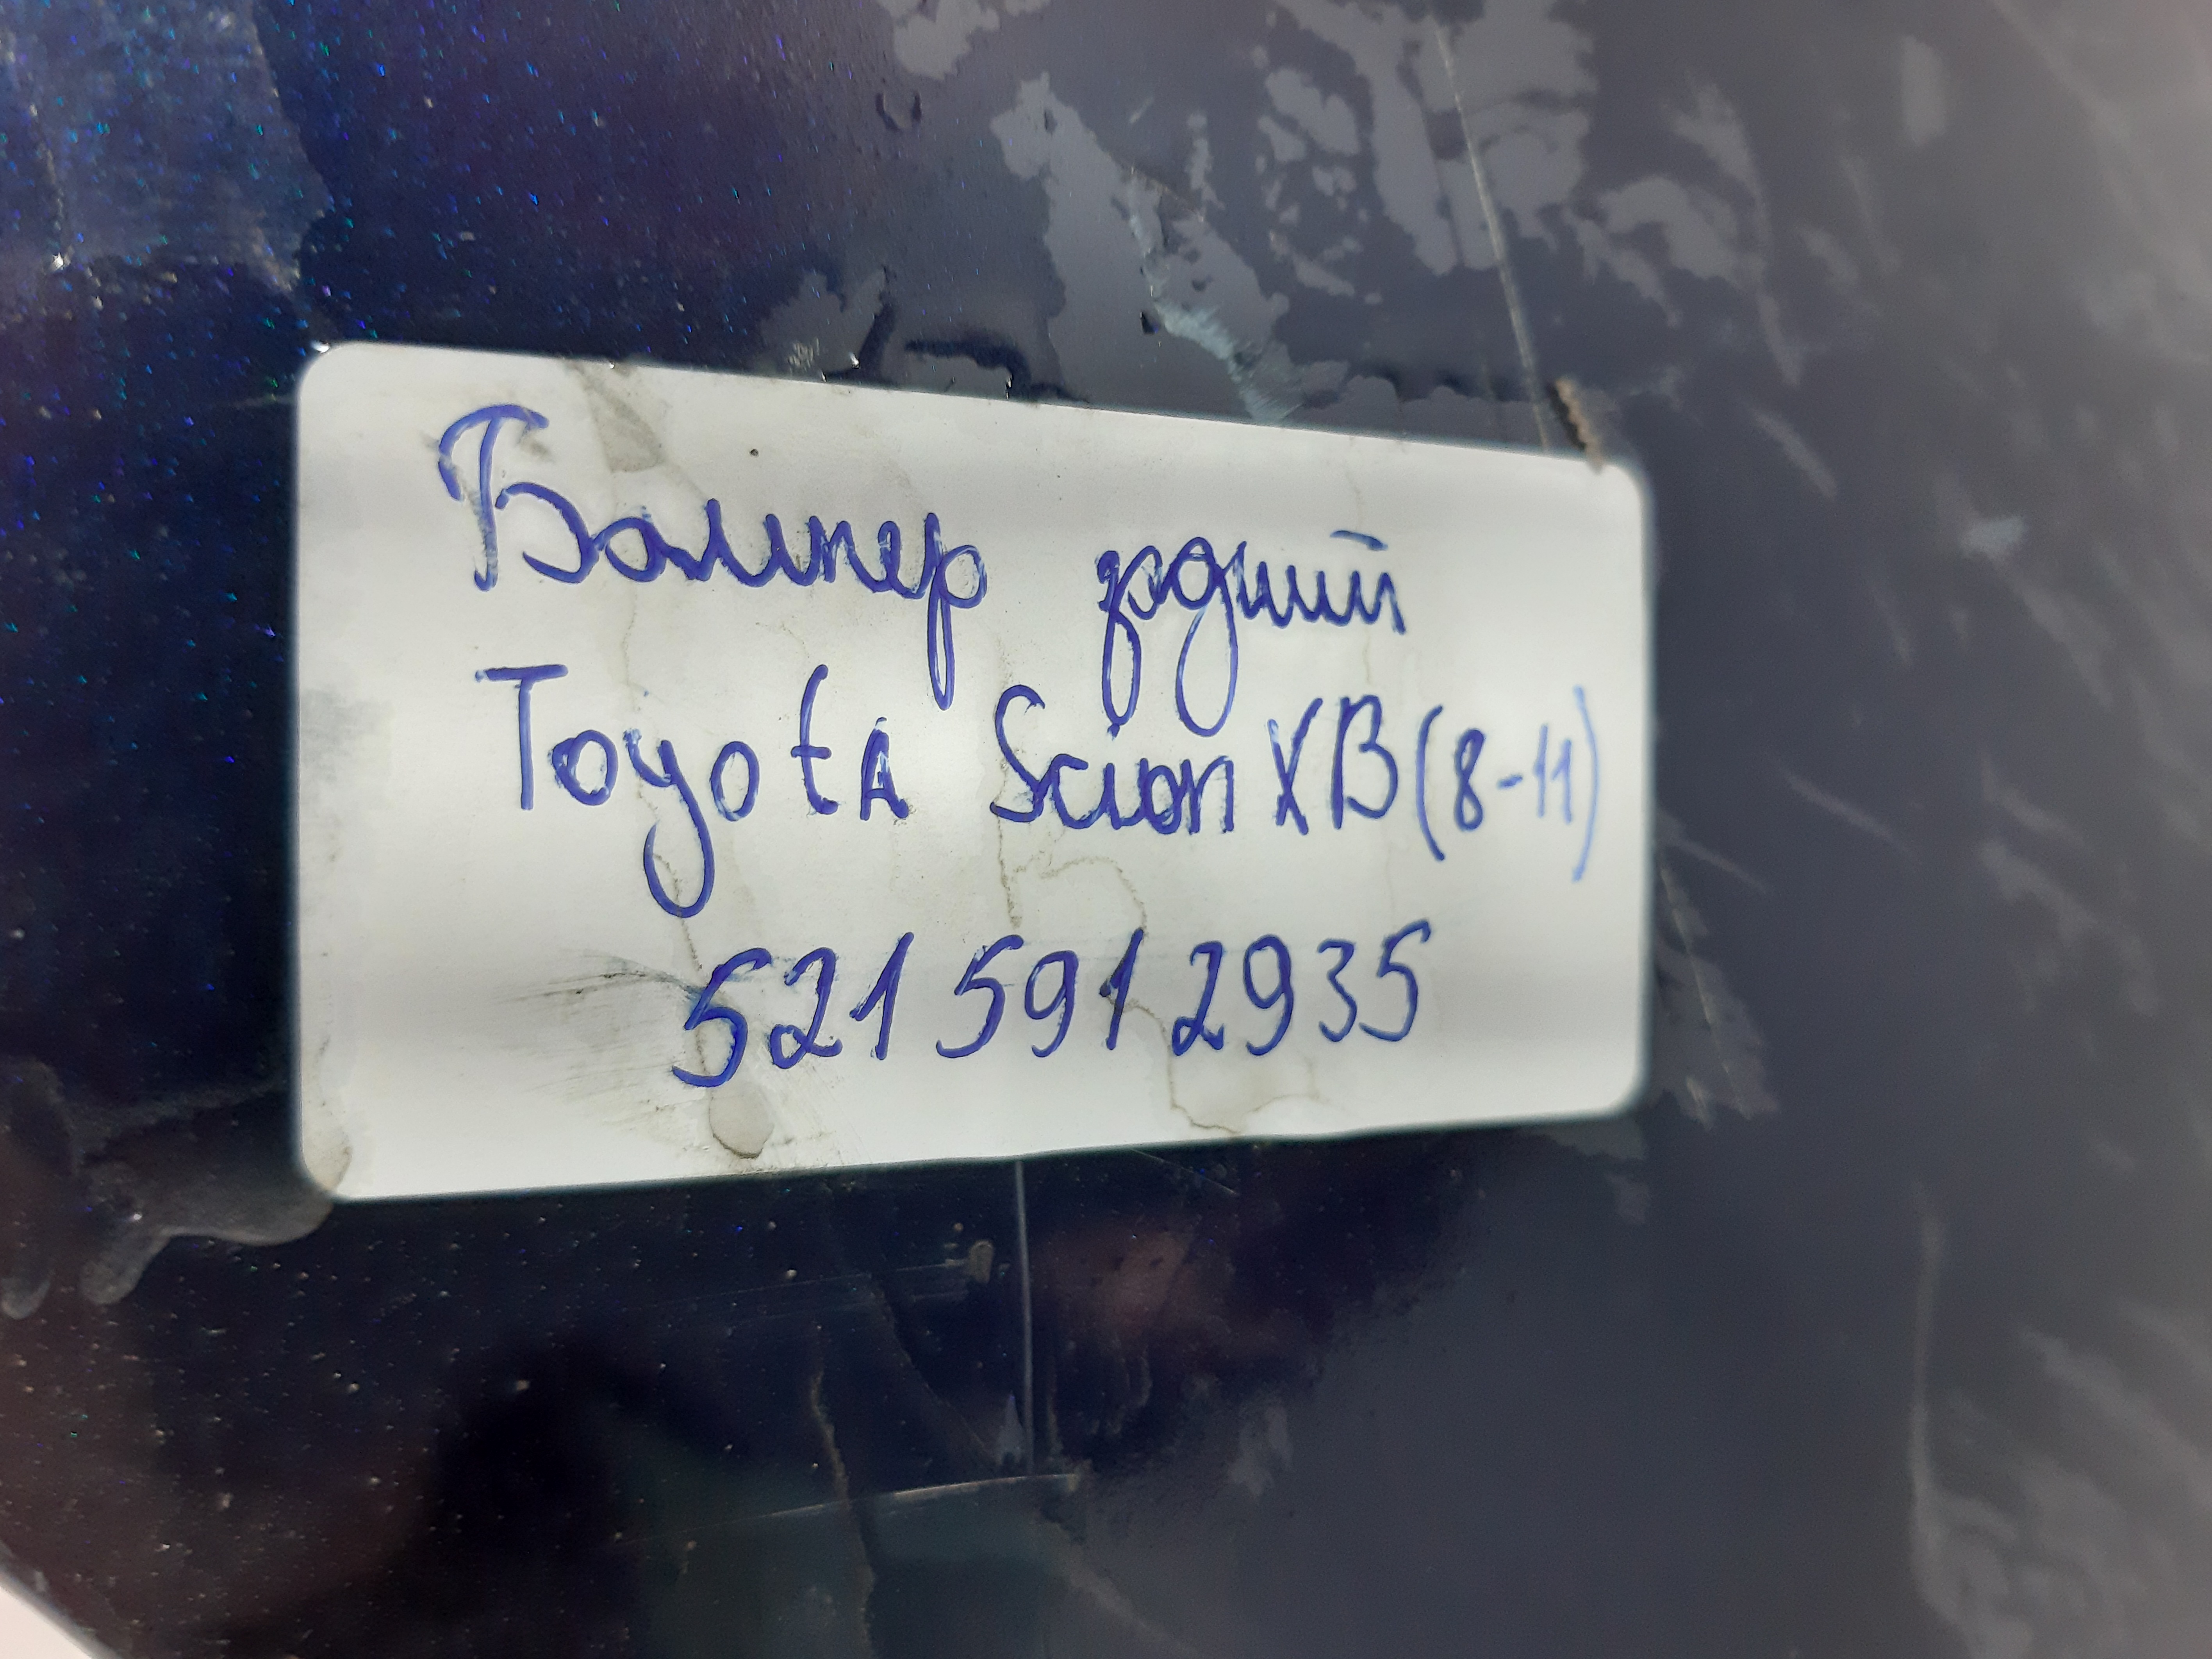 Бампер задний
Toyota Scion XB (8-11)
5215912935